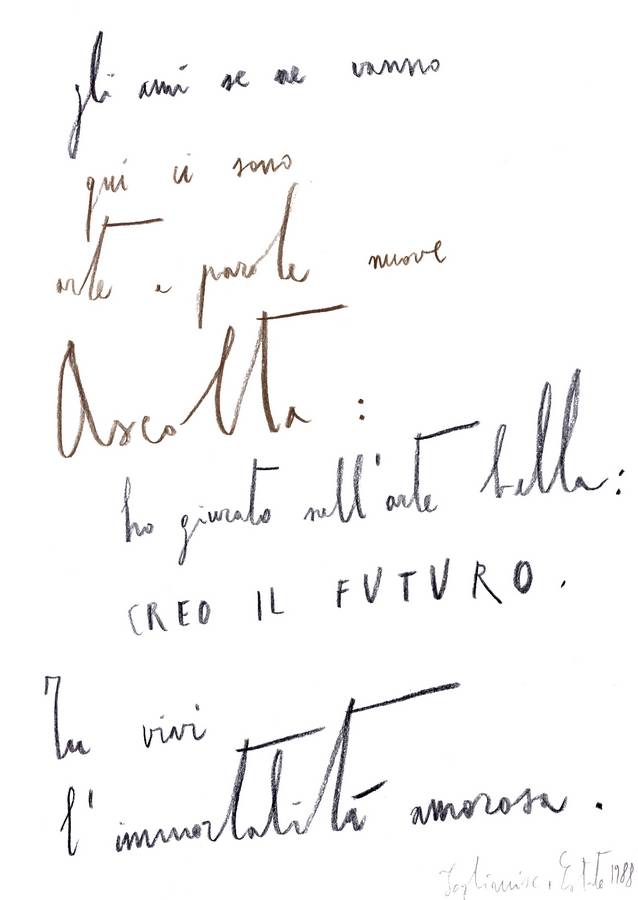 gli anni se ne vanno
qui ci sono
arte e parole nuove
Ascolta :
ho giurato nell'arte bella :
CREO IL FUTURO .
Tu vivi
l'immortalità amorosa .
Estate 1988